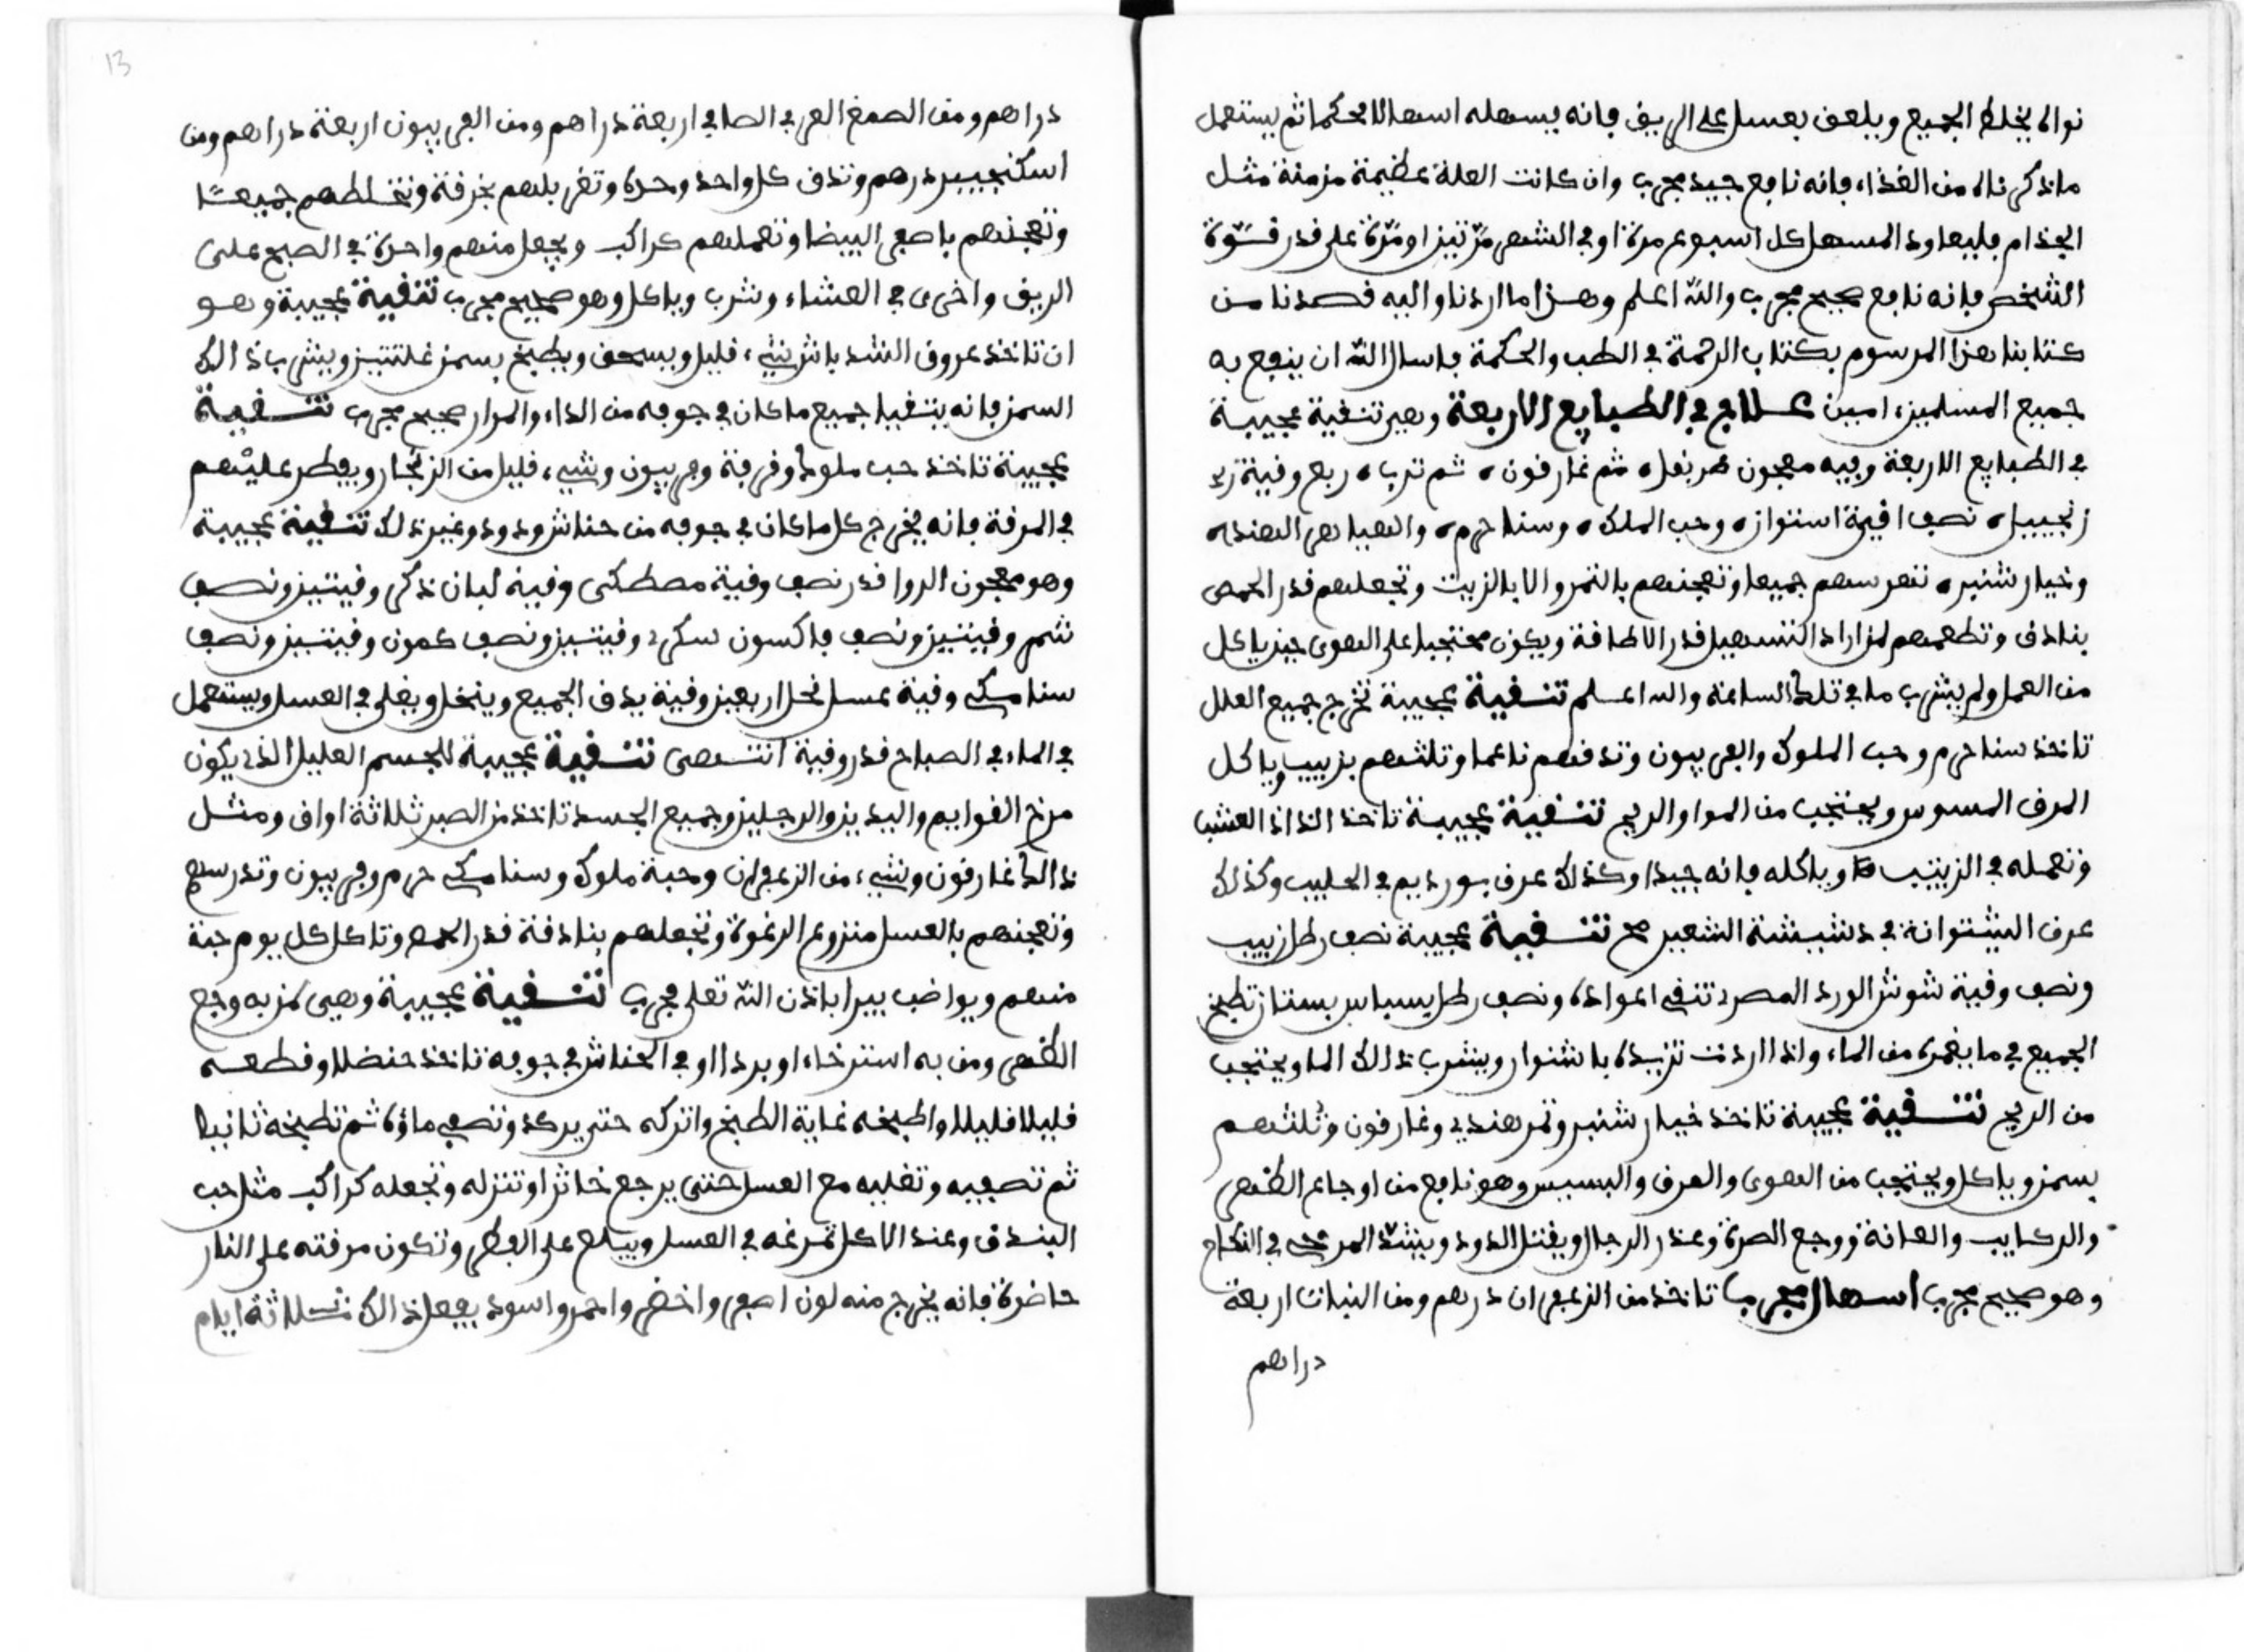 نواه يخلط الجميع ويلعق بعسل على الريق فإنه يسهله اسهالا محكما ثم يستعمل
ما ذكرناه من الغذاء فانه نافع جيد مجرب وان كانت العلة عظيمة مزمنة مثل
الجذام فليعاود المسهل كل اسبوع مرة او في الشهر مرّتين او مرّة على قدر قوّة
الشخص فانه نافع صحيح مجرب والله اعلم وهذا ما اردنا واليه قصدنا من
كتابنا هذا المرسوم بكتاب الرحمة في الطب والحكمة فاسال الله ان ينفع به
جميع المسلمين امين علاج في الطبايع الاربعة وهي تنقية عجيبة
في الطبايع الاربعة وفيه معجون ثم غارقون ثم ربع وقية
زنجبيل نصف وحب الملوك وسنا حرم
وخيار شنبر تهرسهم جميعا وتعجنهم بالتمر والا بالزيت وتجعلهم قدر الحمص
بنادق وتطعمهم لمن اراد التسهيل قدر الاطاقة ويكون محتجبا على الهوى حين ياكل
من العمل ولم يشرب ما في تلك الساعة والله اعلم تنقية عجيبة تخرج جميع العلل
تاخذ سنا حرم وحب الملوك والفربيون وتدقهم ناعما وتلثهم بزبيب وياكل
المرق المسوس ويحتجب من الموا والريح تنقية عجيبة تاخذ العشب
وتعمله في وياكله فانه جيدا وكذلك عرق في الحليب وكذلك
عرق في دشيشة الشعير صح تنقية عجيبة نصف رطل زبيب
ونصف وقية شوش الورد المصري ونصف رطل بسباس تطبخ
الجميع في ما يغمره من الماء واذا اردت تزيده وبشرب ذالك الما ويحتجب
من الريح تنقية عجيبة تاخذ خيار شنبر وتمر هندي وغارقون وتلثهم
بسمن وياكل ويحتجب من الهوى والعرق والبسيس وهو نافع من اوجاع الظهر
والركايب والعانة ووجع الصرة وعند الرجال ويقتل الدود ويشدّ المرخي في النكاح
وهو صحيح مجرب اسهال مجرب تاخذ من الزعفران درهم ومن النبات اربعة
دراهم
13
دراهم ومن الصمغ العربي الصافي اربعة دراهم ومن الفربيون اربعة دراهم ومن
اسكنجبير درهم وتدق كل واحد وحده وتغربلهم بخرقة وتخلطهم جميعًا
وتعجنهم باصفر البيضا وتعملهم كراكب ويجعل منهم واحدة في الصبح على
الريق واخرى في العشاء وشرب وياكل وهو صحيح مجرب تنقية عجيبة وهو
ان تاخذ عروق قليل ويسحق ويطبخ بسمن ويشرب ذالك
السمن فانه يتقيا جميع ما كان في جوفه من الداء والمرار صحيح مجرب تنقية
عجيبة تاخذ حب ملوك وقرفة وفربيون وشيء قليل من الزنجار ويقطر عليهم
في المرقة فانه يخرج كل ما كان في جوفه من حناش ودود وغير ذلك تنقية عجيبة
وهو معجون الروا قدر نصف وقية مصطكى وقية لبان ذكر وقيتين ونصف
شمر وقيتين ونصف سكري وقيتين ونصف كمون وقيتين ونصف
سنا مكي وقية عسل نحل اربعين وقية يدق الجميع وينخل ويغلى في العسل ويستعمل
في الماء في الصباح قدر وقية انتهى تنقية عجيبة للجسم العليل الذي يكون
مرخ القوايم واليدين والرجلين وجميع الجسد تاخذ من الصبر ثلاثة اواق ومثل
ذالك غارقون وشيء من الزعفران وحبة ملوك وسنا مكي حرم وفربيون وتدرسهم
وتعجنهم بالعسل منزوع الرغوة وتجعلهم بنادقة قدر الحمص وتاكل كل يوم حبة
منهم ويواضب يبرا باذن الله تعلى مجرب تنقية عجيبة وهي لمن به وجع
الظهر ومن به استرخاء او بردا او في الحناش في جوفه تاخذ حنضلا وقطعه
قليلا قليلا واطبخه غاية الطبخ واتركه حتى يركد وتصفي ماؤه ثم تطبخه ثانيا
ثم تصفيه وتغليه مع العسل حتى يرجع خاثرا وتنزله وتجعله كراكب مثل حب
البندق وعند الاكل تمرغه في العسل ويبلع على الفطر وتكون مرقته على النار
حاضرة فانه يخرج منه لون اصفر واخضر واحمر واسود يفعل ذالك ثلاثة ايام